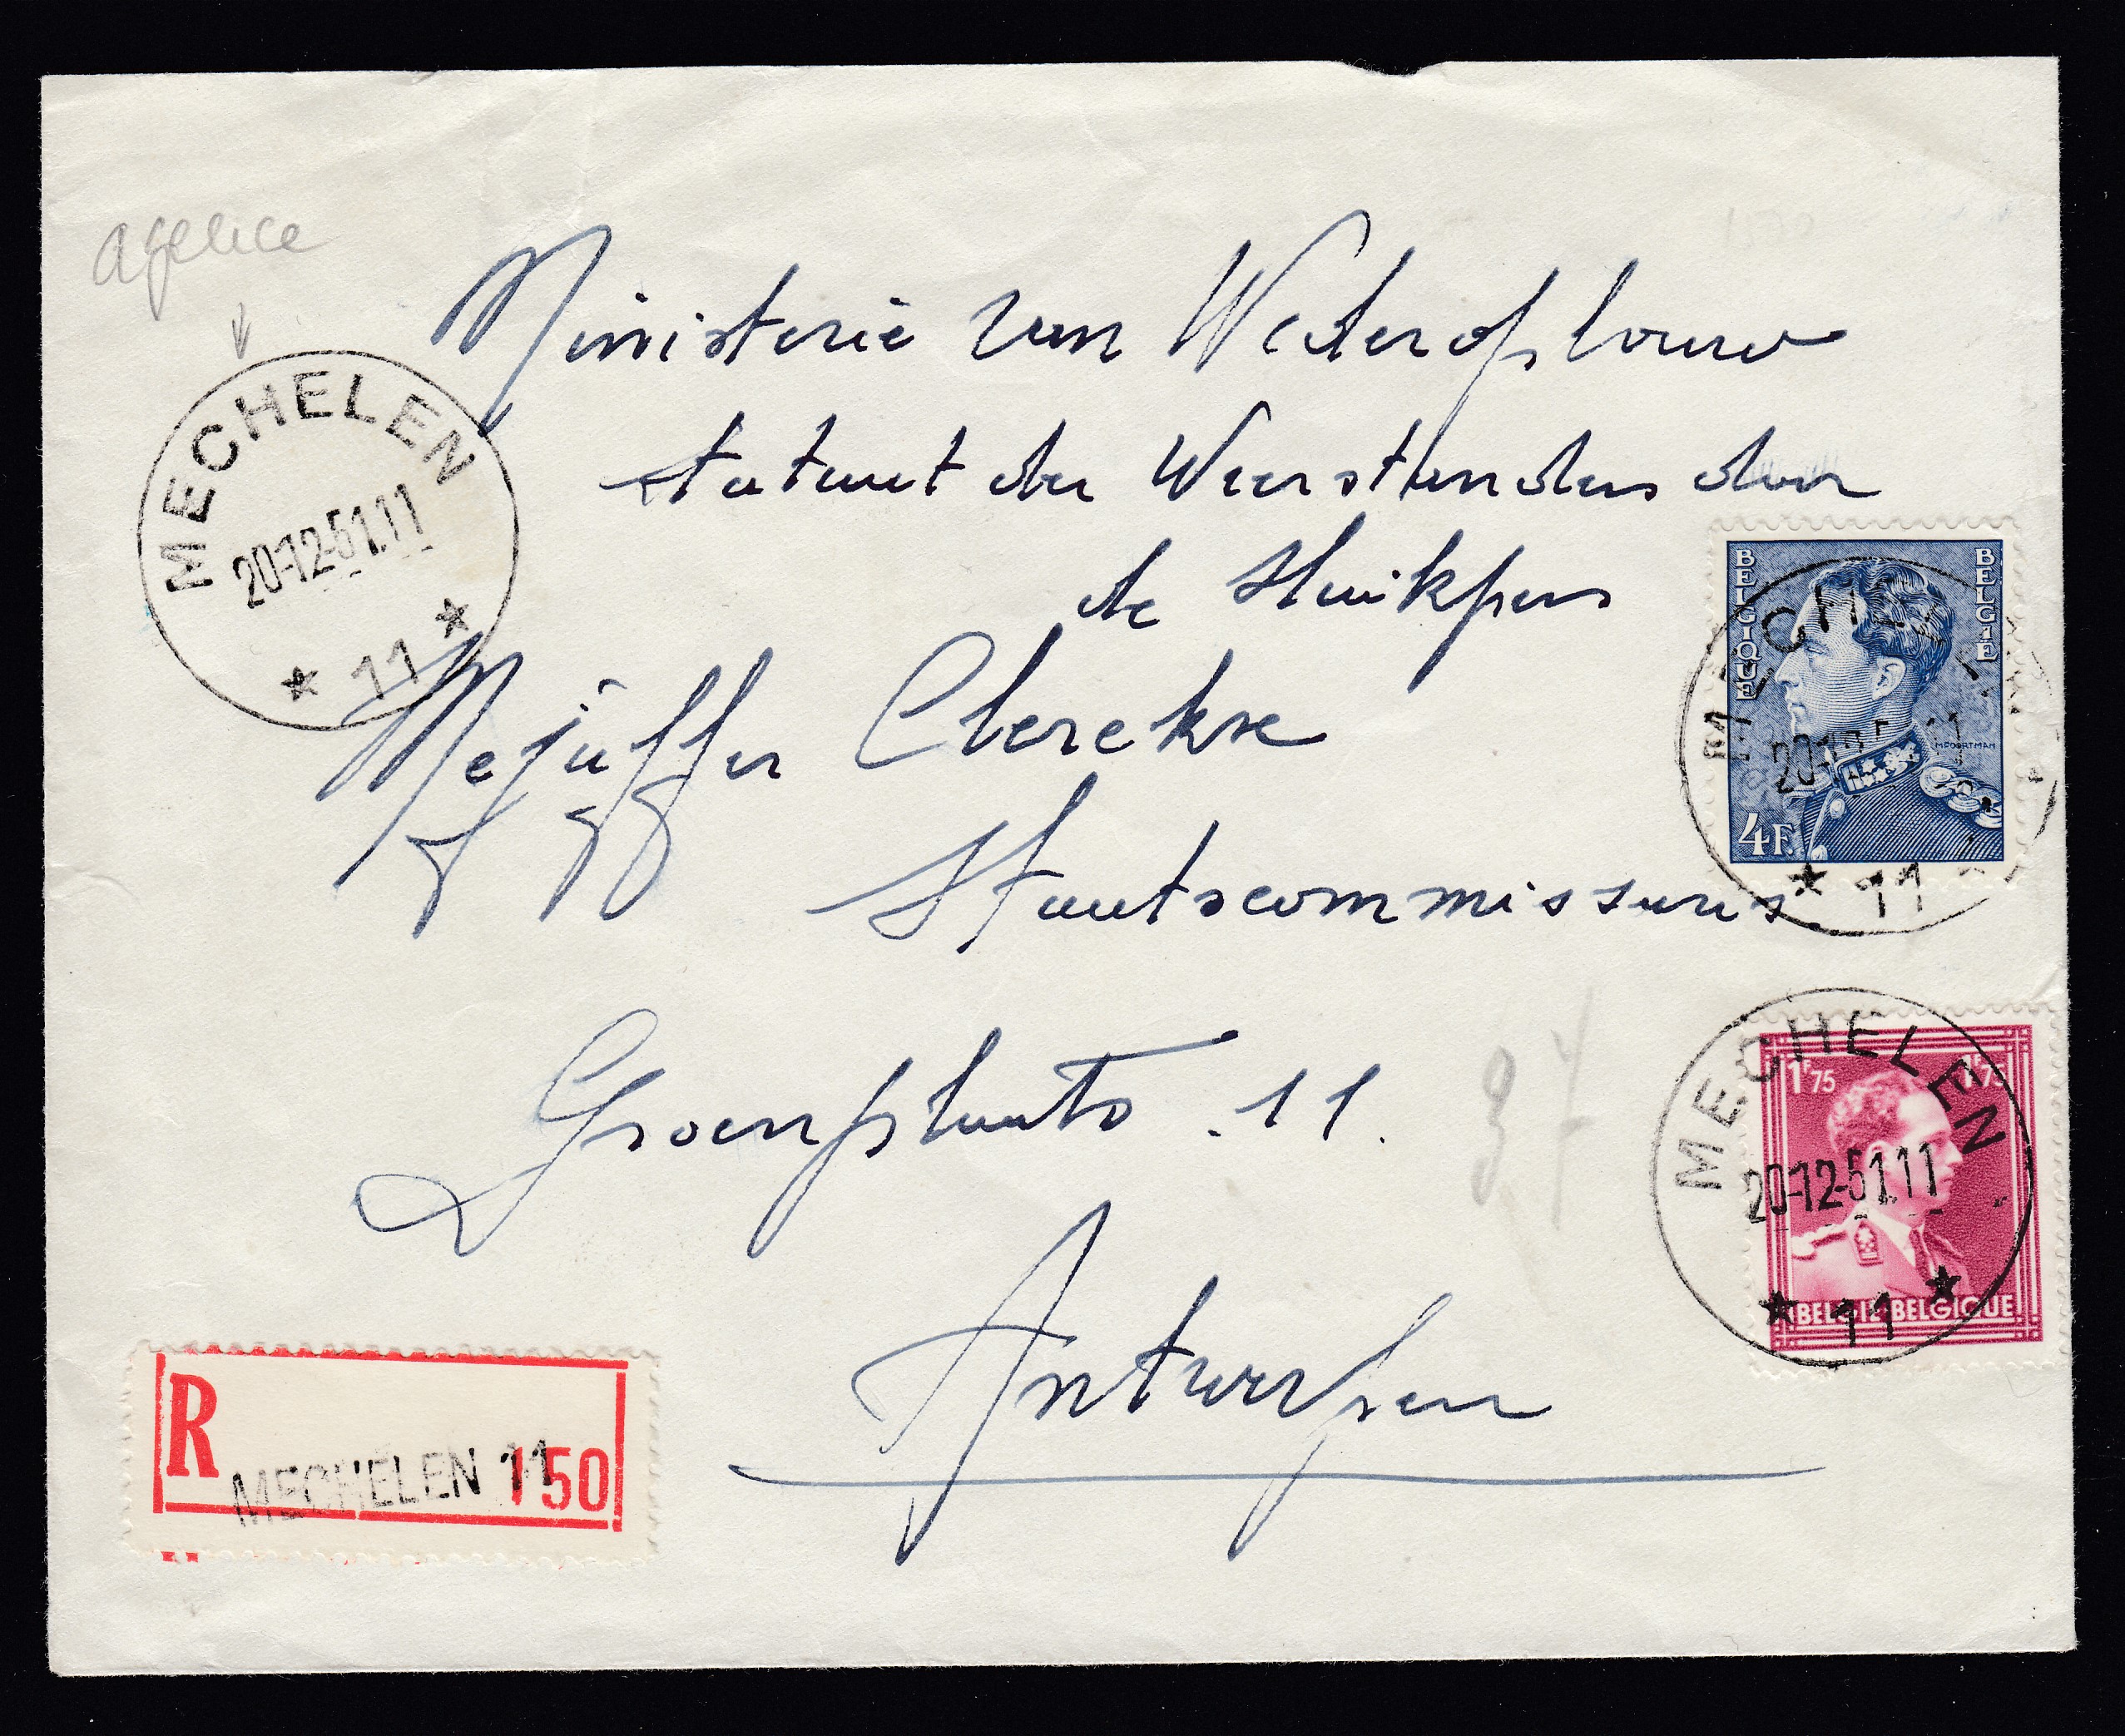 agence
MECHELEN
20-12-51.11
★ 11 ★
Ministerie van Wederopbouw
statuut der Weerstanders door
de sluikpers
Mejuffer Clerckx
Staatscommissaris
Groenplaats .11.
Antwerpen
BELGIQUE
BELGIË
M.POORTMAN
4F.
MECHELEN
20-12-5 11
★ 11
1F75
1F75
BELGIË BELGIQUE
MECHELEN
20-12-51.11
★ 11 ★
R
MECHELEN 11
150